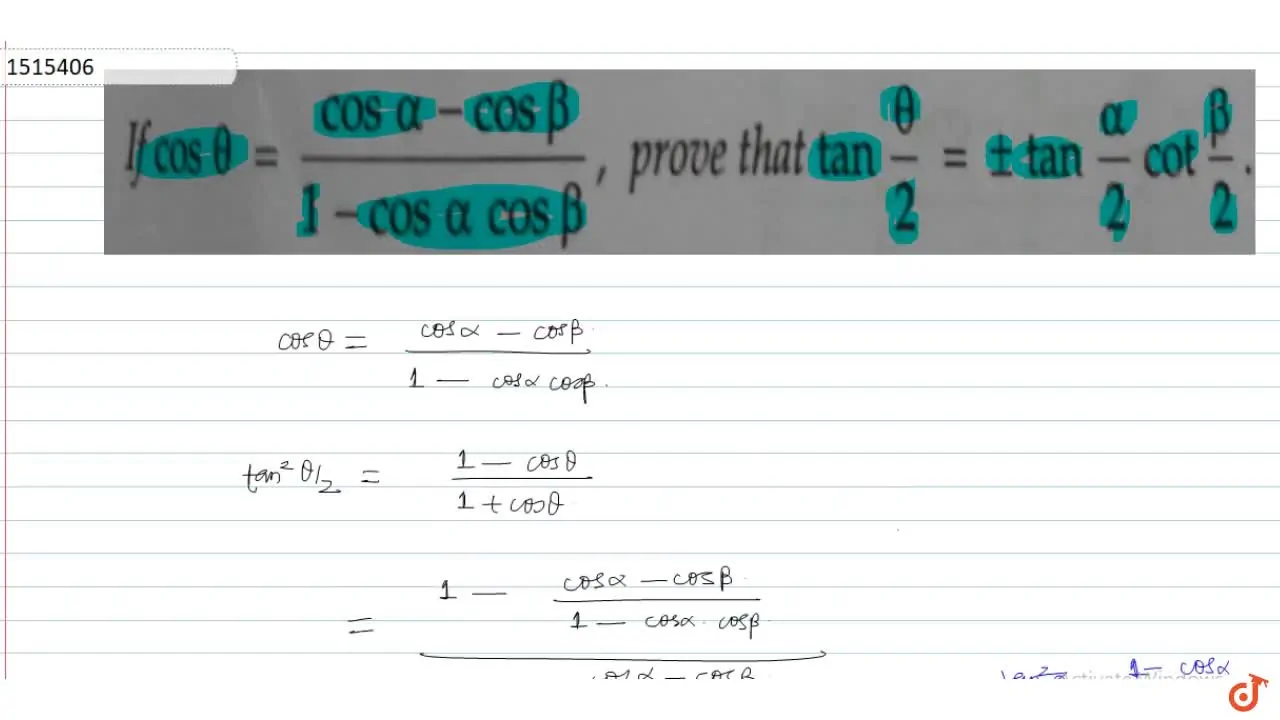 1515406
If cos θ = (cos α − cos β)/(1 − cos α cos β), prove that tan θ/2 = ± tan α/2 cot β/2.
cosθ = (cosα − cosβ)/(1 − cosα cosβ).
tan² θ/2 = (1 − cosθ)/(1 + cosθ)
= 1 − (cosα − cosβ)/(1 − cosα. cosβ)
cosα − cosβ
tan² 1 − cosα